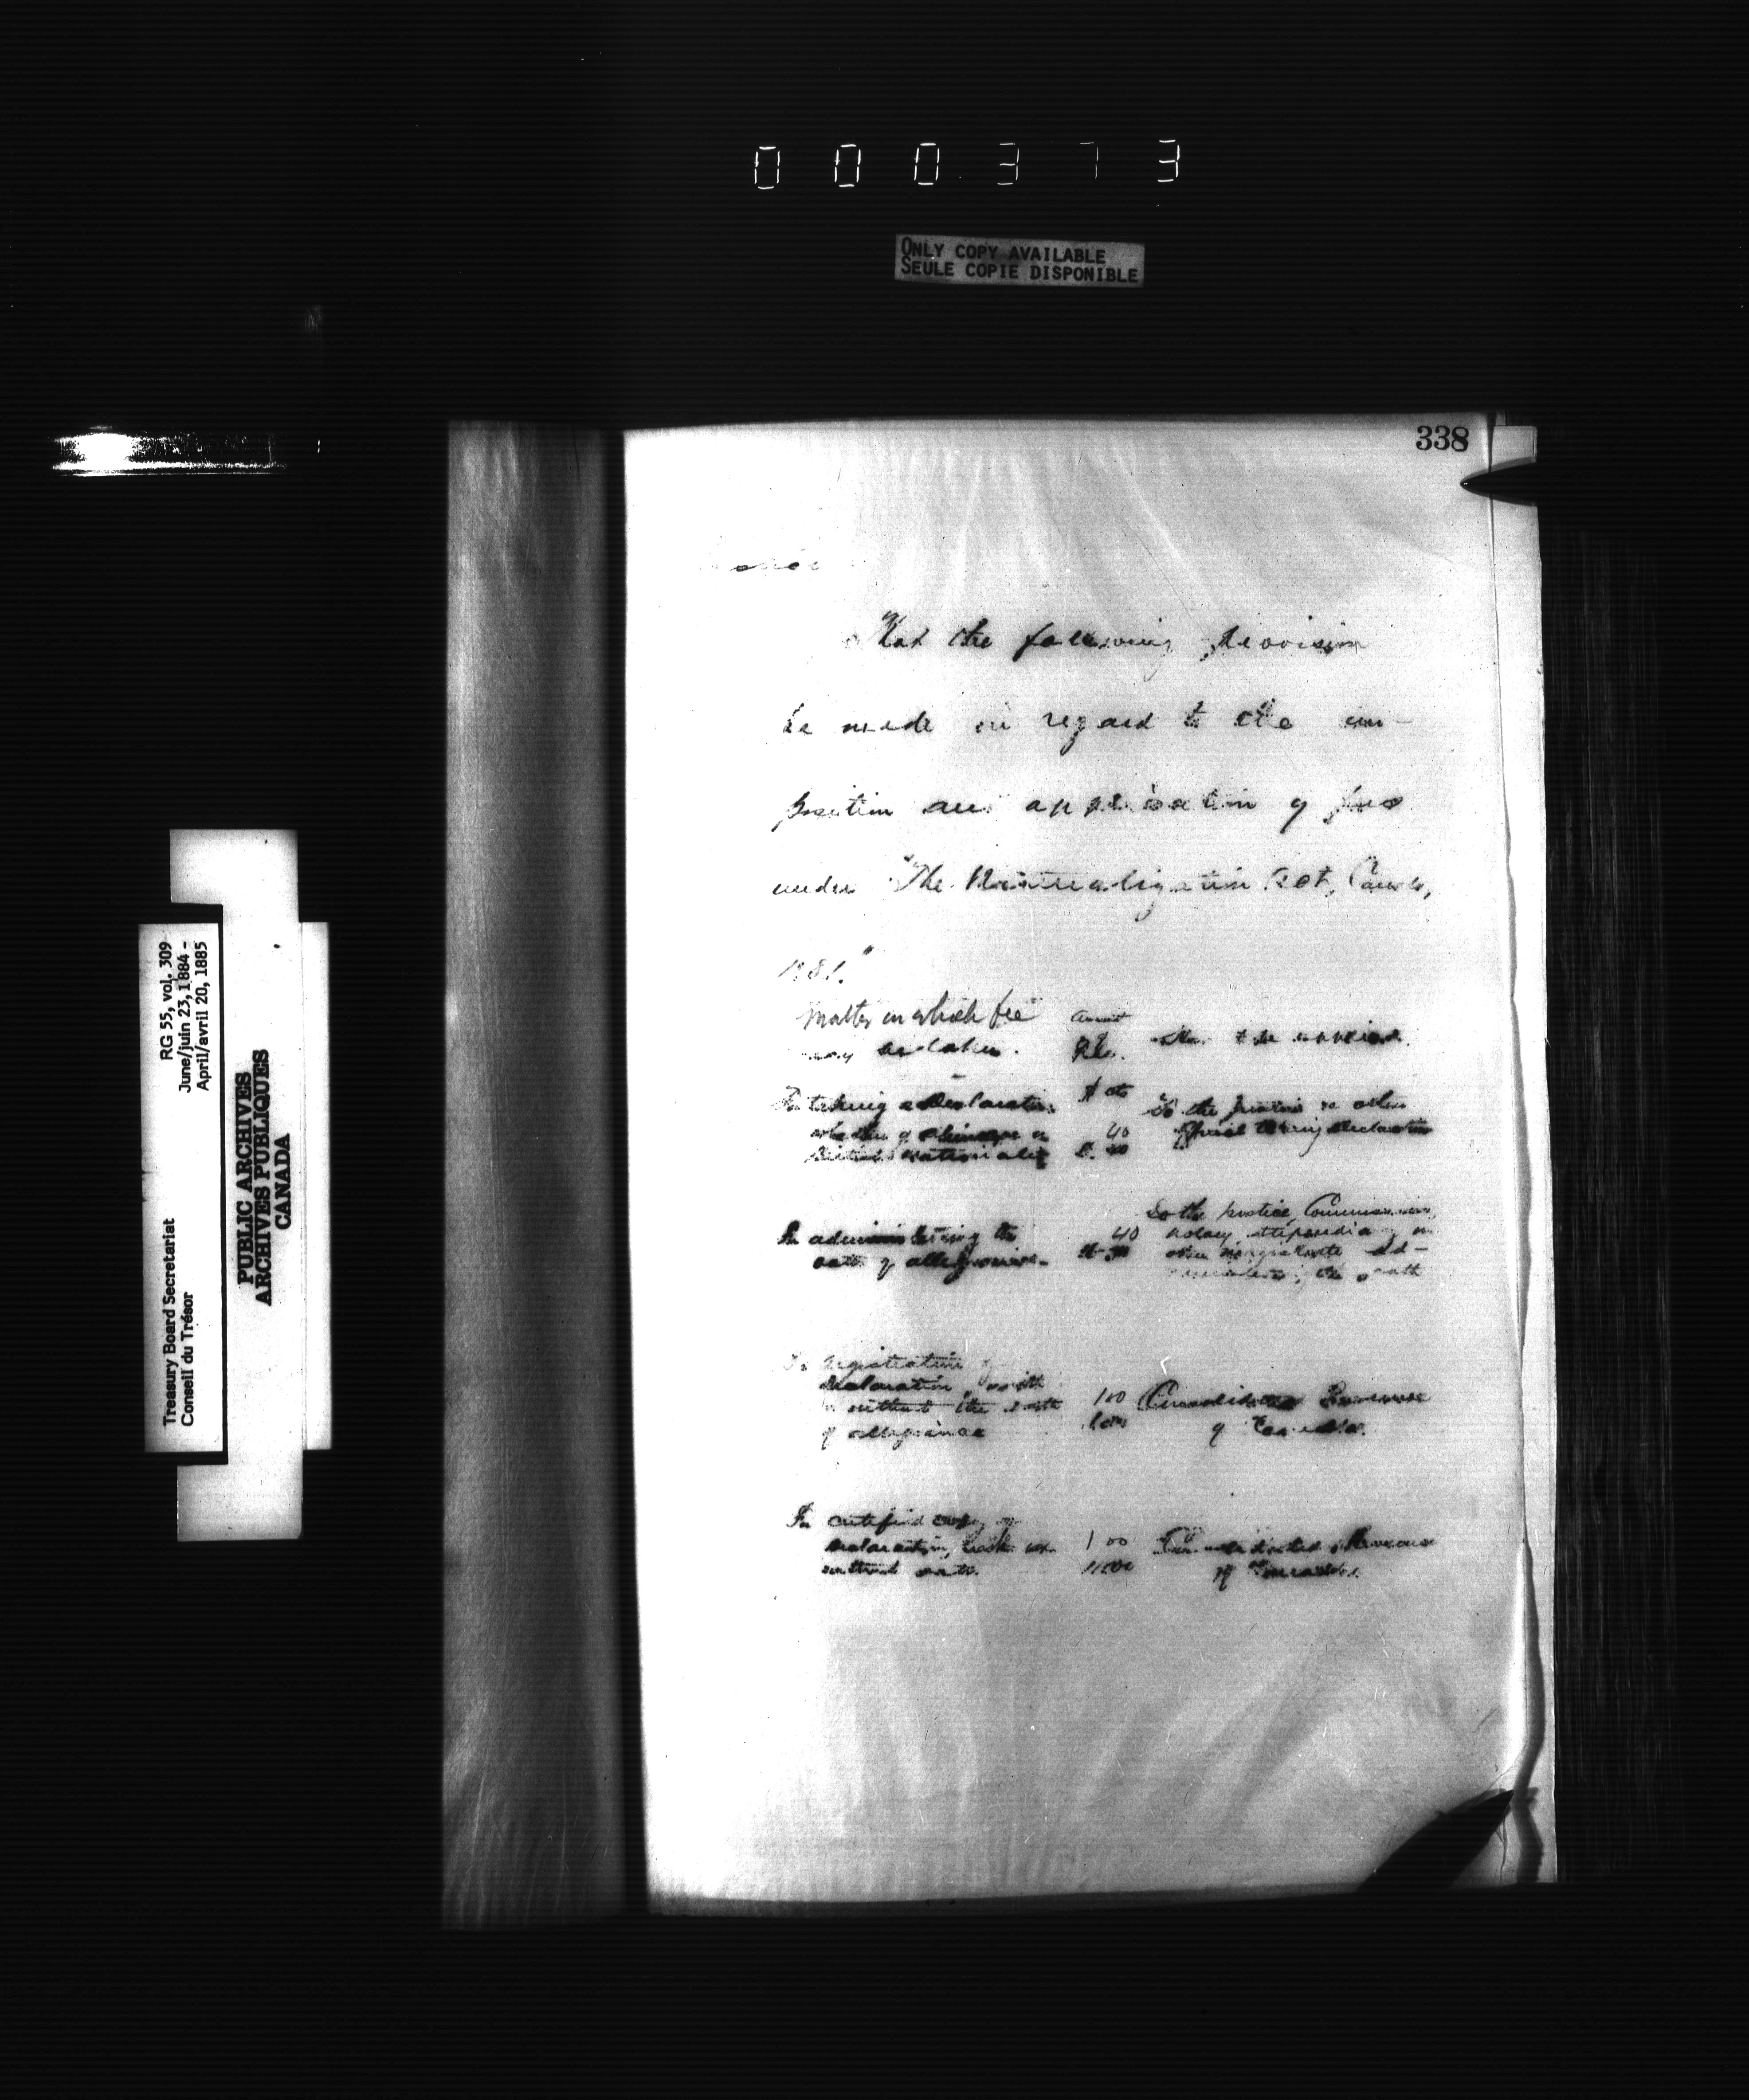 000373
ONLY COPY AVAILABLE
SEULE COPIE DISPONIBLE
338
That the following provision
be made in regard to the im-
position and application of fees
under "The Naturalization Act, Canada,
1881."
Matter in which fee
may be taken.
Amount
Fee.
How to be applied.
For taking a declaration
whether of alienage or
British nationality
$ cts
40
To the justice or other
official taking declaration
For administering the
oath of allegiance.
40
To the justice, Commissioner,
notary, stipendiary or
other magistrate ad-
ministering the oath
For registration of
declaration with
or without the oath
of allegiance
1 00
Consolidated Revenue
of Canada.
For certified copy of
declaration, with or
without oath.
1 00
Consolidated Revenue
of Canada.
RG 55, vol. 309
June/juin 23, 1884 -
April/avril 20, 1885
Treasury Board Secretariat
Conseil du Trésor
PUBLIC ARCHIVES
ARCHIVES PUBLIQUES
CANADA